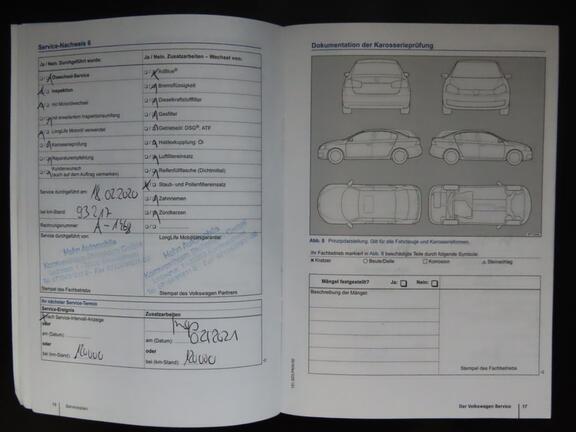 Service-Nachweis 6
Ja / Nein. Durchgeführt wurde:
Ölwechsel-Service
Inspektion
mit Motorölwechsel
mit erweitertem Inspektionsumfang
LongLife Motoröl verwendet
Karosserieprüfung
Reparaturempfehlung
Kundenwunsch
(auch auf dem Auftrag vermerken)
Service durchgeführt am: 18.02.2020
bei km-Stand: 93217
Rechnungsnummer:
Service durchgeführt von:
Hahn Automobile
Stempel des Fachbetriebs
Ja / Nein. Zusatzarbeiten – Wechsel von:
AdBlue®
Bremsflüssigkeit
Dieselkraftstofffilter
Gasfilter
Getriebeöl: DSG®, ATF
Haldexkupplung: Öl
Luftfiltereinsatz
Reifenfüllflasche (Dichtmittel)
Staub- und Pollenfiltereinsatz
Zahnriemen
Zündkerzen
LongLife Mobilitätsgarantie:
Stempel des Volkswagen Partners
Ihr nächster Service-Termin
Service-Ereignis
nach Service-Intervall-Anzeige
oder
am (Datum):
oder
bei (km-Stand): 120000
Zusatzarbeiten
02/2021
am (Datum):
oder
bei (km-Stand): 120000
16
Serviceplan
Dokumentation der Karosserieprüfung
Abb. 5 Prinzipdarstellung. Gilt für alle Fahrzeuge und Karosserieformen.
Ihr Fachbetrieb markiert in Abb. 5 beschädigte Teile durch folgende Symbole:
Kratzer
Beule/Delle
Korrosion
Steinschlag
Mängel festgestellt? Ja: Nein:
Beschreibung der Mängel:
Stempel des Fachbetriebs
Der Volkswagen Service 17